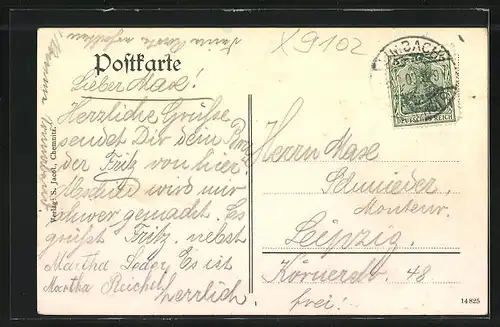 X9102
Postkarte
Lieber Max!
Herzliche Grüße
sendet Dir dein
der Fritz von hier.
wird mir
schwer gemacht. Es
grüßt Fritz. nebst
Martha Es ist
Martha Reichel
herrlich
Verlag: S. Jacobi, Chemnitz.
DEUTSCHES REICH
Herrn Max
Schmieder,
Monteur.
Leipzig.
Körnerstr. 48
frei!
14825